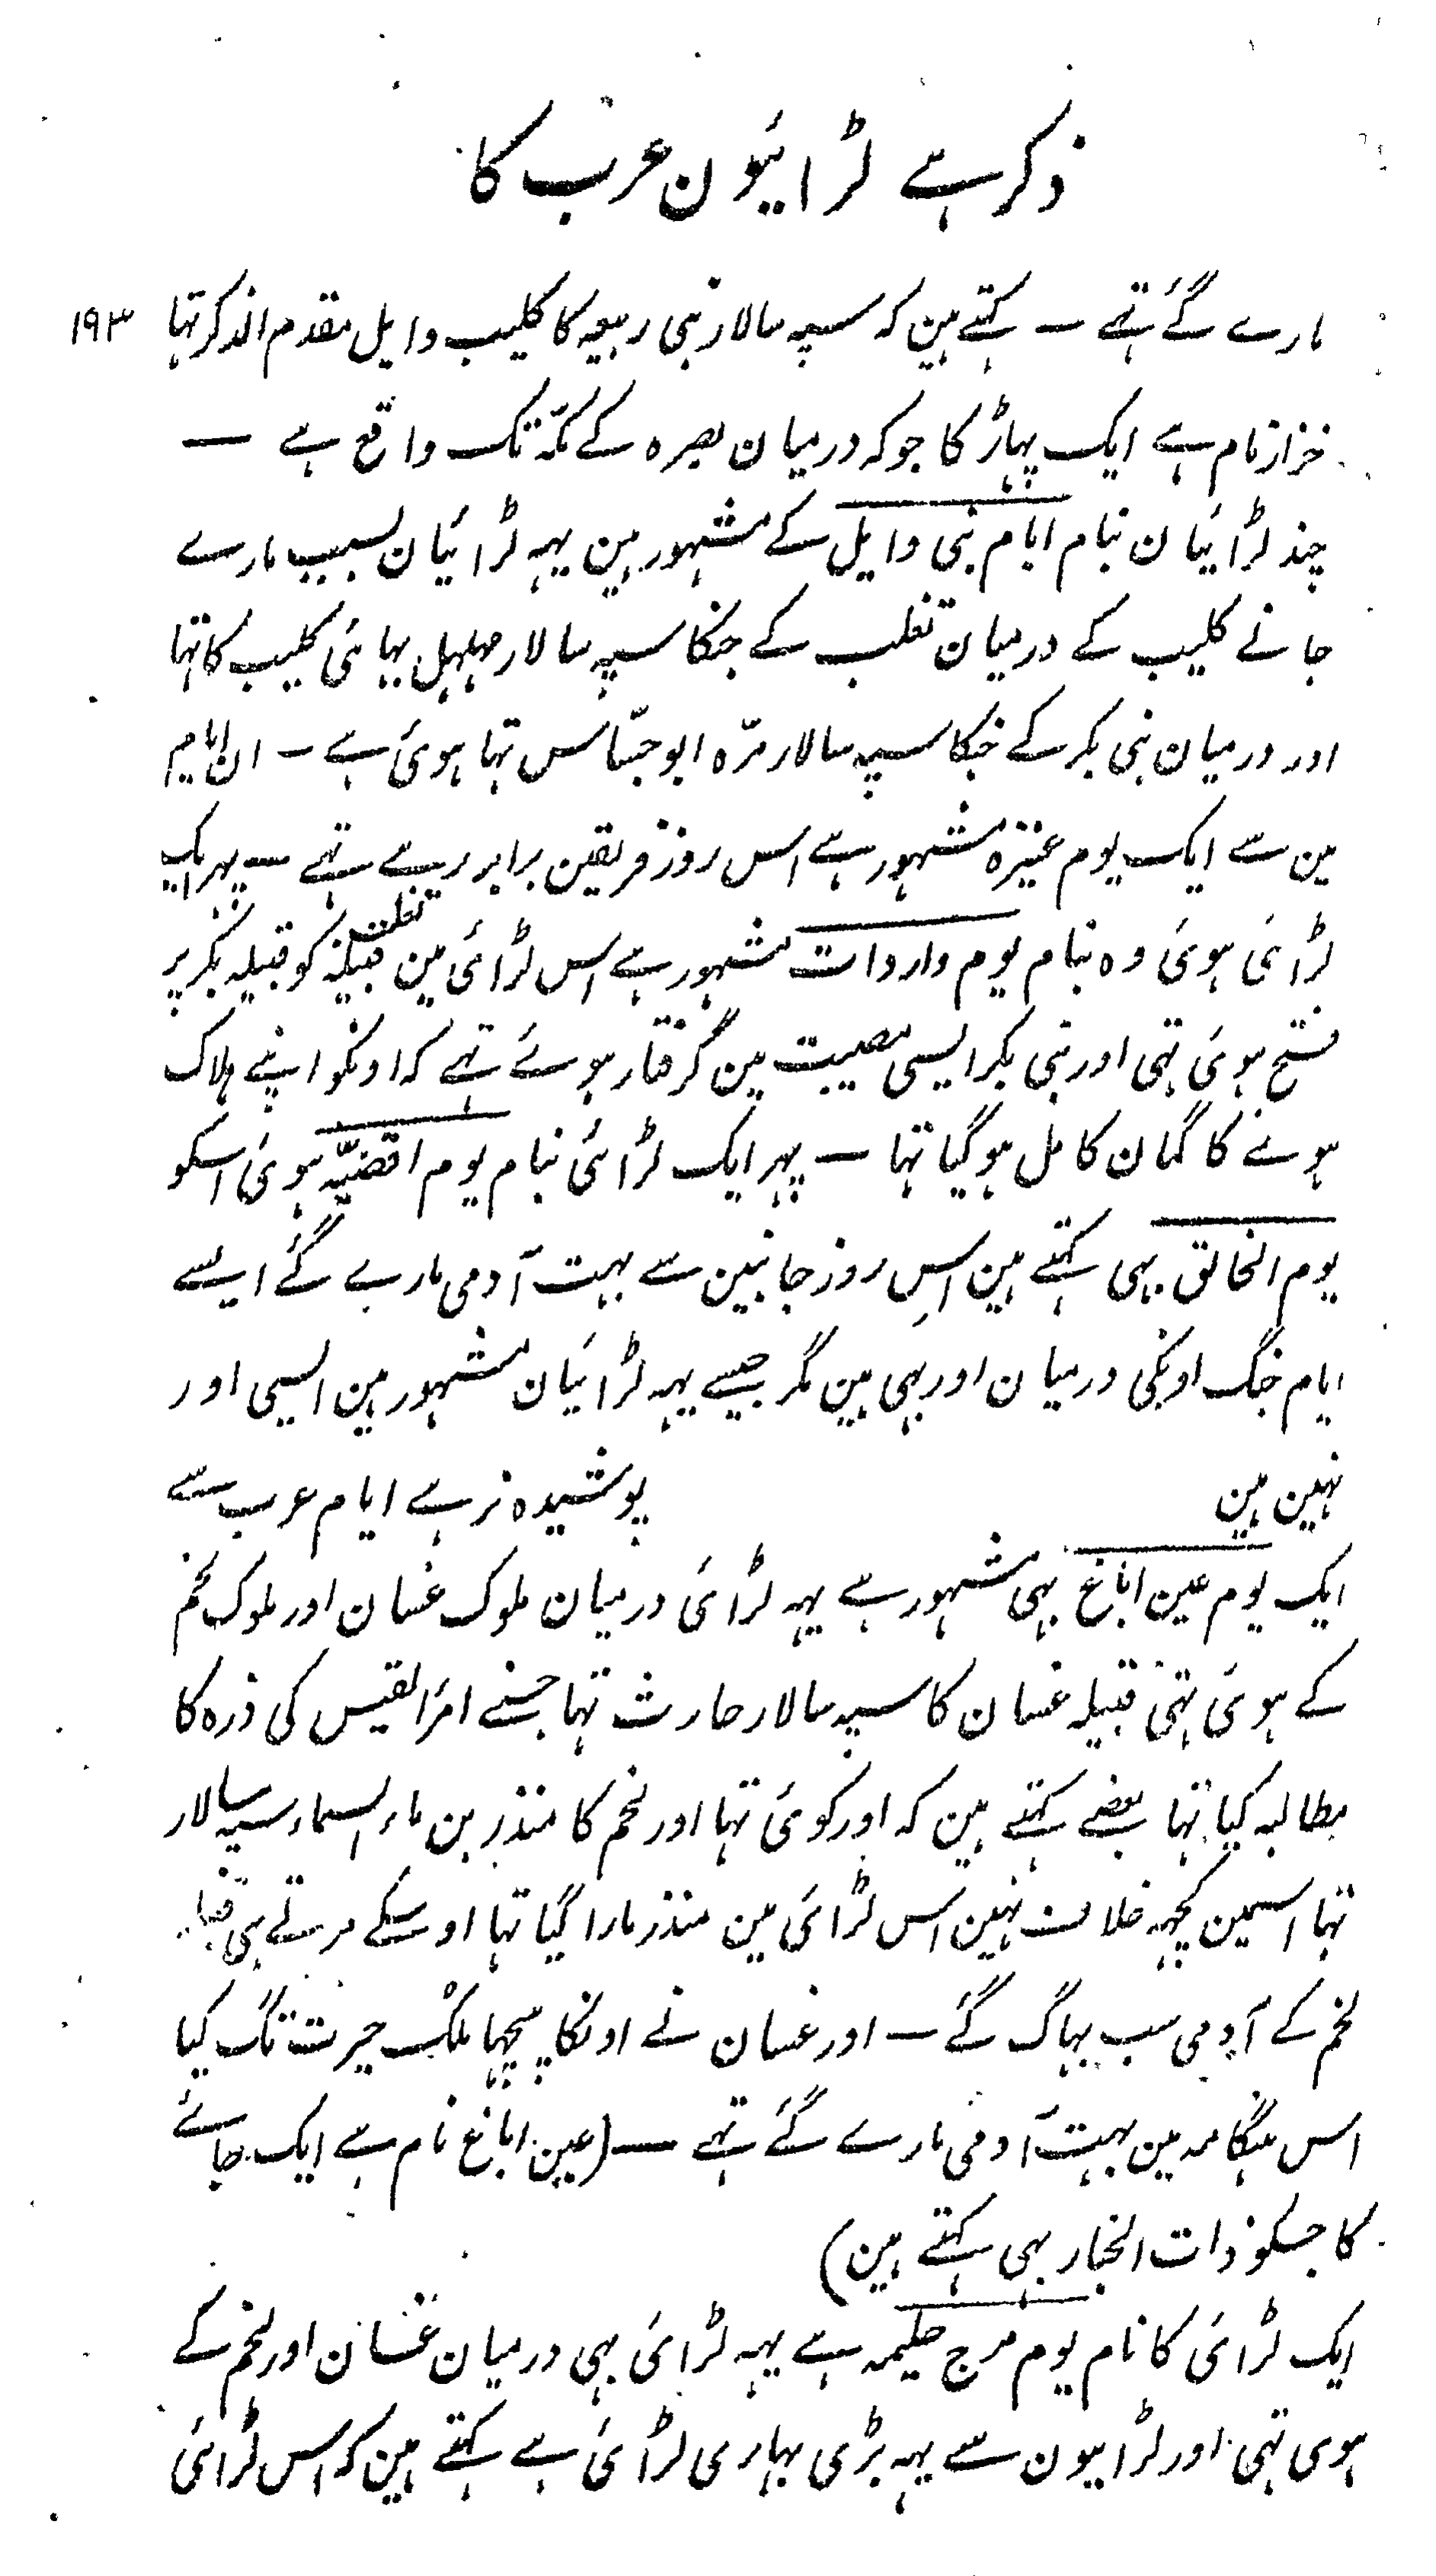 ذکر ہے لڑائیون عرب کا
مارے گئے تہے — کہتے ہین کہ سپہ سالار بنی ربیعہ کا کلیب وایل مقدم الذکر تہا ۱۹۳
خزاز نام ہے ایک پہاڑ کا جو کہ درمیان بصرہ کے مکّہ تک واقع ہے —
چند لڑائیان بنام ایام بنی وایل کے مشہور ہین یہہ لڑائیان بسبب مارے
جانے کلیب کے درمیان تغلب کے جنکا سپہ سالار مہلہل بہائی کلیب کا تہا
اور درمیان بنی بکر کے جنکا سپہ سالار مرّہ ابو جسّاس تہا ہوئی ہے — ان ایام
مین سے ایک یوم عنیزہ مشہور ہے اس روز فریقین برابر رہے تہے — پہر ایک
لڑائی ہوئی وہ بنام یوم واردات مشہور ہے اس لڑائی مین قبیلہ تغلب کو قبیلہ بکر پر
فتح ہوئی تہی اور بنی بکر ایسی مصیبت مین گرفتار ہوئے تہے کہ اونکو اپنے ہلاک
ہونے کا گمان کامل ہو گیا تہا — پہر ایک لڑائی بنام یوم اقضیّہ ہوئی اسکو
یوم التحالق بہی کہتے ہین اس روز جانبین سے بہت آدمی مارے گئے ایسے
ایام جنگ اونکی درمیان اور بہی ہین مگر جیسے یہہ لڑائیان مشہور ہین ایسی اور
نہین ہین پوشیدہ نرہے ایام عرب سے
ایک یوم عین اباغ بہی مشہور ہے یہہ لڑائی درمیان ملوک غسان اور ملوک لخم
کے ہوئی تہی قبیلہ غسان کا سپہ سالار حارث تہا جسنے امرٔ القیس کی ذرہ کا
مطالبہ کیا تہا بعضے کہتے ہین کہ اور کوئی تہا اور لخم کا منذر بن ماء السماء سپہ سالار
تہا اسمین کچہہ خلاف نہین اس لڑائی مین منذر مارا گیا تہا اوسکے مرتے ہی
لخم کے آدمی سب بہاگ گئے — اور غسان نے اونکا پیچہا ملک حیرت تک کیا
اس ہنگامہ مین بہت آدمی مارے گئے تہے — (عین اباغ نام ہے ایک جائے
کا جسکو ذات الخیار بہی کہتے ہین)
ایک لڑائی کا نام یوم مرج حلیمہ ہے یہہ لڑائی بہی درمیان غسان اور لخم کے
ہوی تہی اور لڑایون سے یہہ بڑی بہاری لڑائی ہے کہتے ہین کہ اس لڑائی